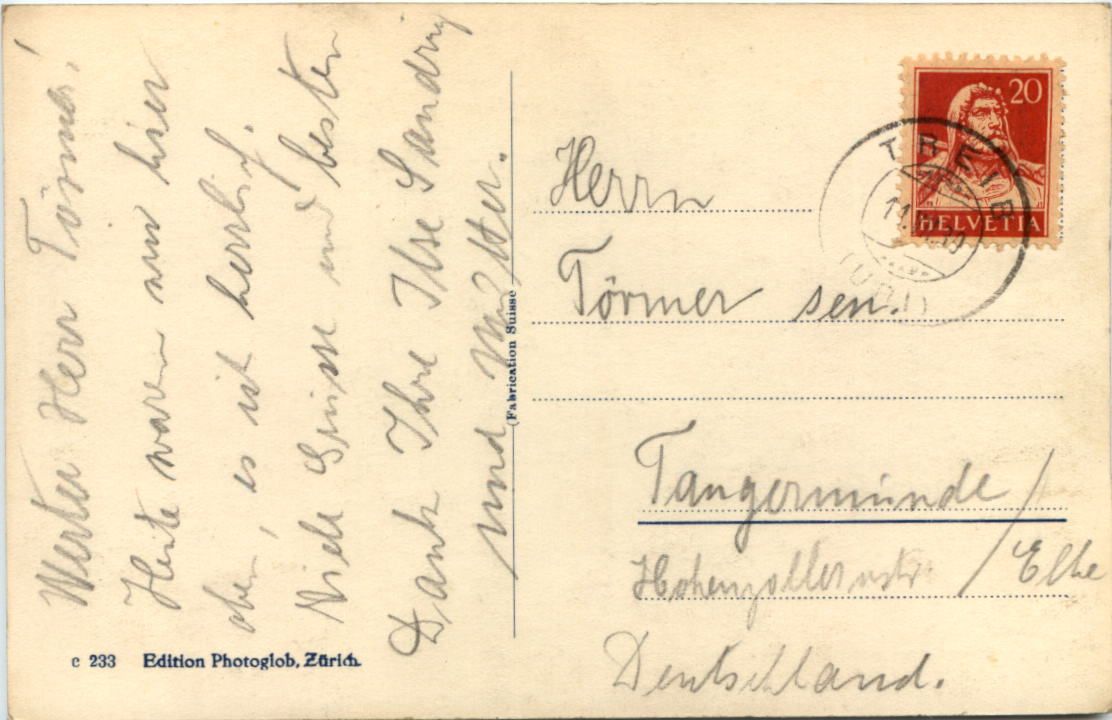 Werter Herr Törmer!
Heute waren wir hier
oben, es ist herrlich.
Viele Grüsse und besten
Dank Ihre Ilse Sandring
und Mutter.
c 233 Edition Photoglob, Zürich.
(Fabrication Suisse
20
HELVETIA
TREIB
(URI)
Herrn
Törmer sen.
Tangermünde /
Hohenzollernstr / Elbe
Deutschland.